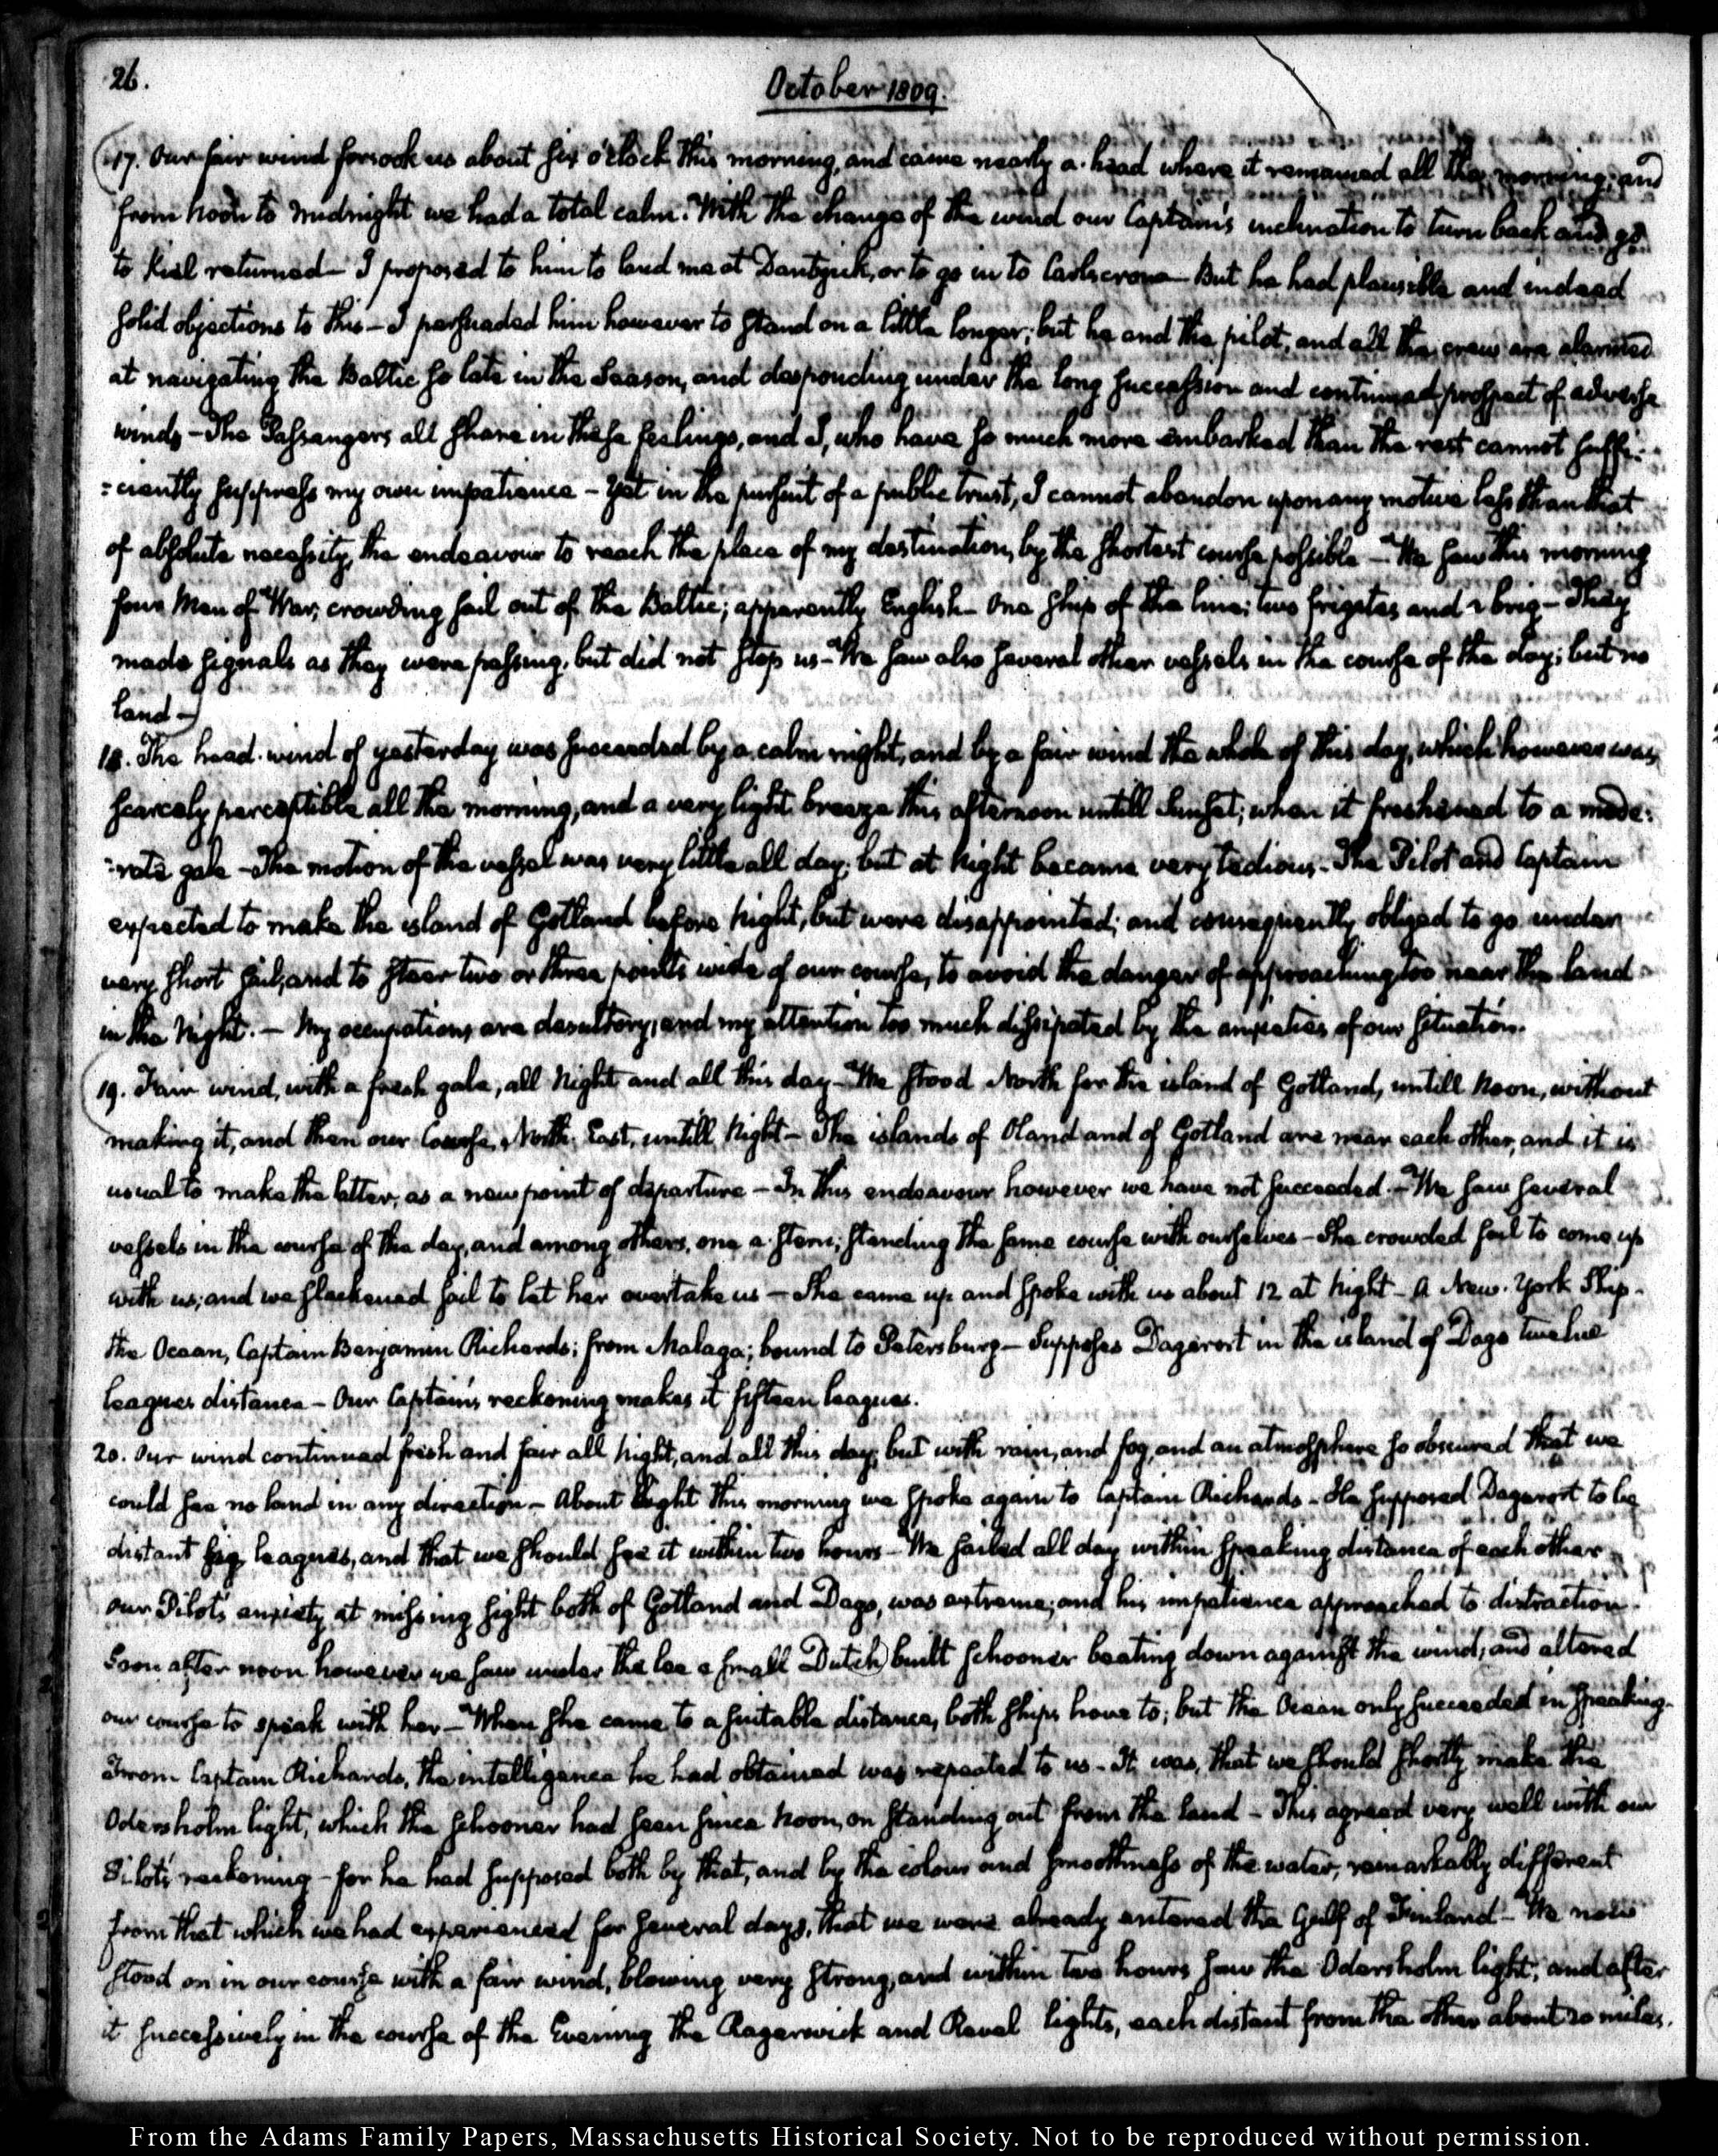 26.
October 1809.
17. Our fair wind forsook us about six o'clock this morning, and came nearly a-head where it remained all the morning; and
from noon to midnight we had a total calm. With the change of the wind our Captain's inclination to turn back and go
to Kiel returned— I proposed to him to land me at Dantzick, or to go in to Carlscrona— But he had plausible and indeed
solid objections to this— I persuaded him however to stand on a little longer; but he and the pilot, and all the crew are alarmed
at navigating the Baltic so late in the Season, and desponding under the long succession and continued prospect of adverse
winds— The Passengers all share in these feelings, and I, who have so much more embarked than the rest cannot suffi-
-ciently suppress my own impatience— Yet in the pursuit of a public trust, I cannot abandon upon any motive less than that
of absolute necessity, the endeavour to reach the place of my destination, by the shortest course possible— We saw this morning
four Men of War, crowding sail out of the Baltic; apparently English— One ship of the line; two frigates and a brig— They
made signals as they were passing, but did not stop us— We saw also several other vessels in the course of the day; but no
land—
18. The head-wind of yesterday was succeeded by a calm night, and by a fair wind the whole of this day, which however was
scarcely perceptible all the morning, and a very light breeze this afternoon untill Sunset; when it freshened to a mode-
-rate gale— The motion of the vessel was very little all day; but at Night became very tedious— The Pilot and Captain
expected to make the island of Gotland before Night, but were disappointed; and consequently obliged to go under
very short sail, and to steer two or three points wide of our course, to avoid the danger of approaching too near the land
in the Night.— My occupations are desultory, and my attention too much dissipated by the anxieties of our situation.
19. Fair wind, with a fresh gale, all Night and all this day— We stood North for the island of Gotland, untill Noon, without
making it, and then our Course, North-East, untill Night— The islands of Oland and of Gotland are near each other, and it is
usual to make the latter, as a new point of departure— In this endeavour however we have not succeeded.— We saw several
vessels in the course of the day, and among others, one a-stern; standing the same course with ourselves— She crowded sail to come up
with us; and we slackened sail to let her overtake us— She came up and spoke with us about 12 at Night— A New-York Ship-
the Ocean, Captain Benjamin Richards; from Malaga; bound to Petersburg— Supposes Dagerort in the island of Dago twelve
leagues distance— Our Captain's reckoning makes it fifteen leagues.
20. Our wind continued fresh and fair all Night, and all this day; but with rain, and fog, and an atmosphere so obscured that we
could see no land in any direction— About Eight this morning we spoke again to Captain Richards— He supposed Dagerort to be
distant six leagues, and that we should see it within two hours— We sailed all day within speaking distance of each other
our Pilot's anxiety at missing sight both of Gotland and Dago, was extreme; and his impatience approached to distraction.
Soon after noon however we saw under the lee a small Dutch built schooner beating down against the wind; and altered
our course to speak with her— When she came to a suitable distance, both ships hove to; but the Ocean only succeeded in speaking.
From Captain Richards, the intelligence he had obtained was repeated to us— It was, that we should shortly make the
Odersholm light; which the schooner had seen since Noon, on standing out from the land— This agreed very well with our
Pilot's reckoning— for he had supposed both by that, and by the colour and smoothness of the water, remarkably different
from that which we had experienced for several days, that we were already entered the Gulf of Finland— We now
stood on in our course with a fair wind, blowing very strong, and within two hours saw the Odersholm light; and after
it successively in the course of the Evening the Ragerwick and Reval lights, each distant from the other about 20 miles.
From the Adams Family Papers, Massachusetts Historical Society. Not to be reproduced without permission.